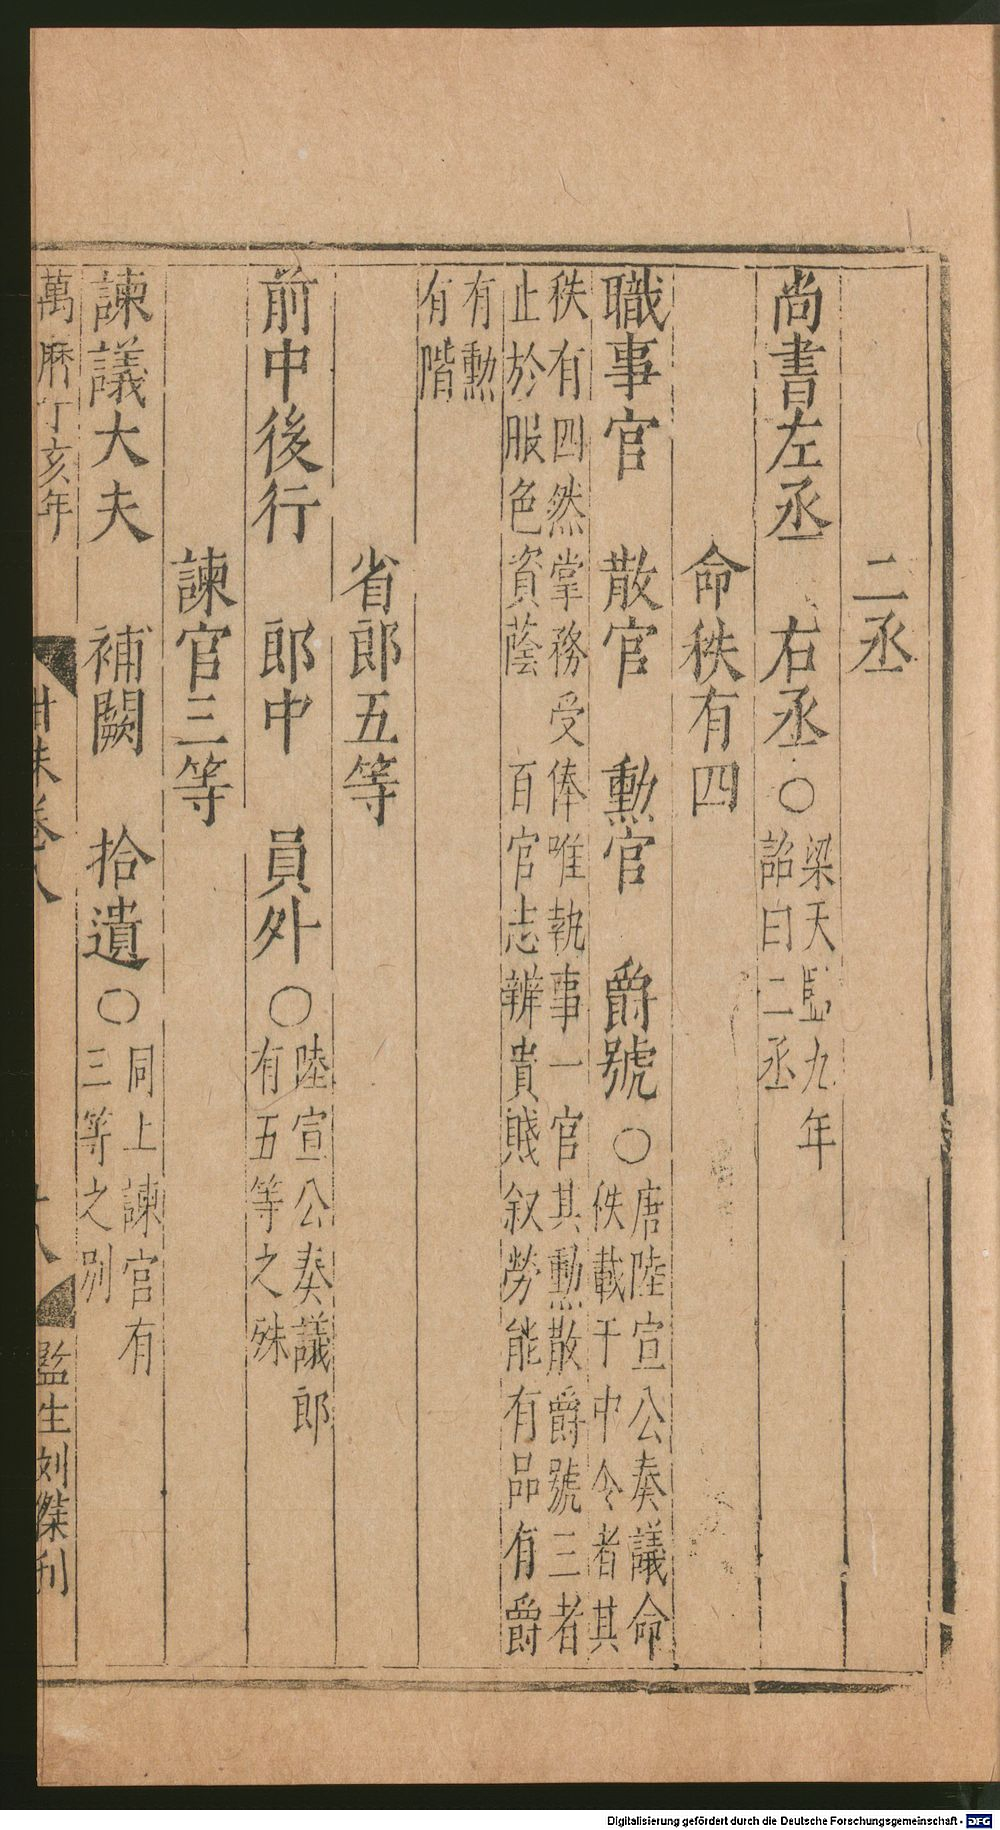 二丞
尚書左丞　右丞○梁天監九年
詔曰二丞
命秩有四
職事官　散官　勳官　爵號○唐陸宣公奏議命
佚載于中令者其
秩有四然掌務受俸唯執事一官其勳散爵號三者
止於服色資蔭　百官志辨貴賤叙勞能有品有爵
有勳
有階
省郎五等
前中後行　郎中　員外○陸宣公奏議郎
有五等之殊
諫官三等
諫議大夫　補闕　拾遺○同上諫官有
三等之別
萬曆丁亥年　卷八　監生刘傑刊
Digitalisierung gefördert durch die Deutsche Forschungsgemeinschaft - DFG